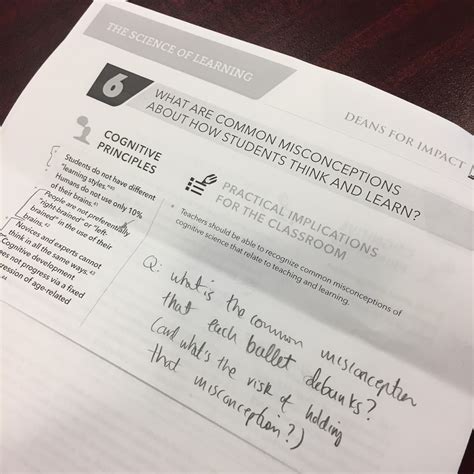 THE SCIENCE OF LEARNING
DEANS FOR IMPACT
6
WHAT ARE COMMON MISCONCEPTIONS
ABOUT HOW STUDENTS THINK AND LEARN?
COGNITIVE
PRINCIPLES
Students do not have different
"learning styles."
Humans do not use only 10%
of their brains.41
People are not preferentially
"right-brained" or "left-
brained" in the use of their
brains.42
Novices and experts cannot
think in all the same ways.43
Cognitive development
es not progress via a fixed
ression of age-related
44
PRACTICAL IMPLICATIONS
FOR THE CLASSROOM
• Teachers should be able to recognize common misconceptions of
cognitive science that relate to teaching and learning.
Q: what is the common misconception
that each bullet debunks?
(and what's the risk of holding
that misconception?)